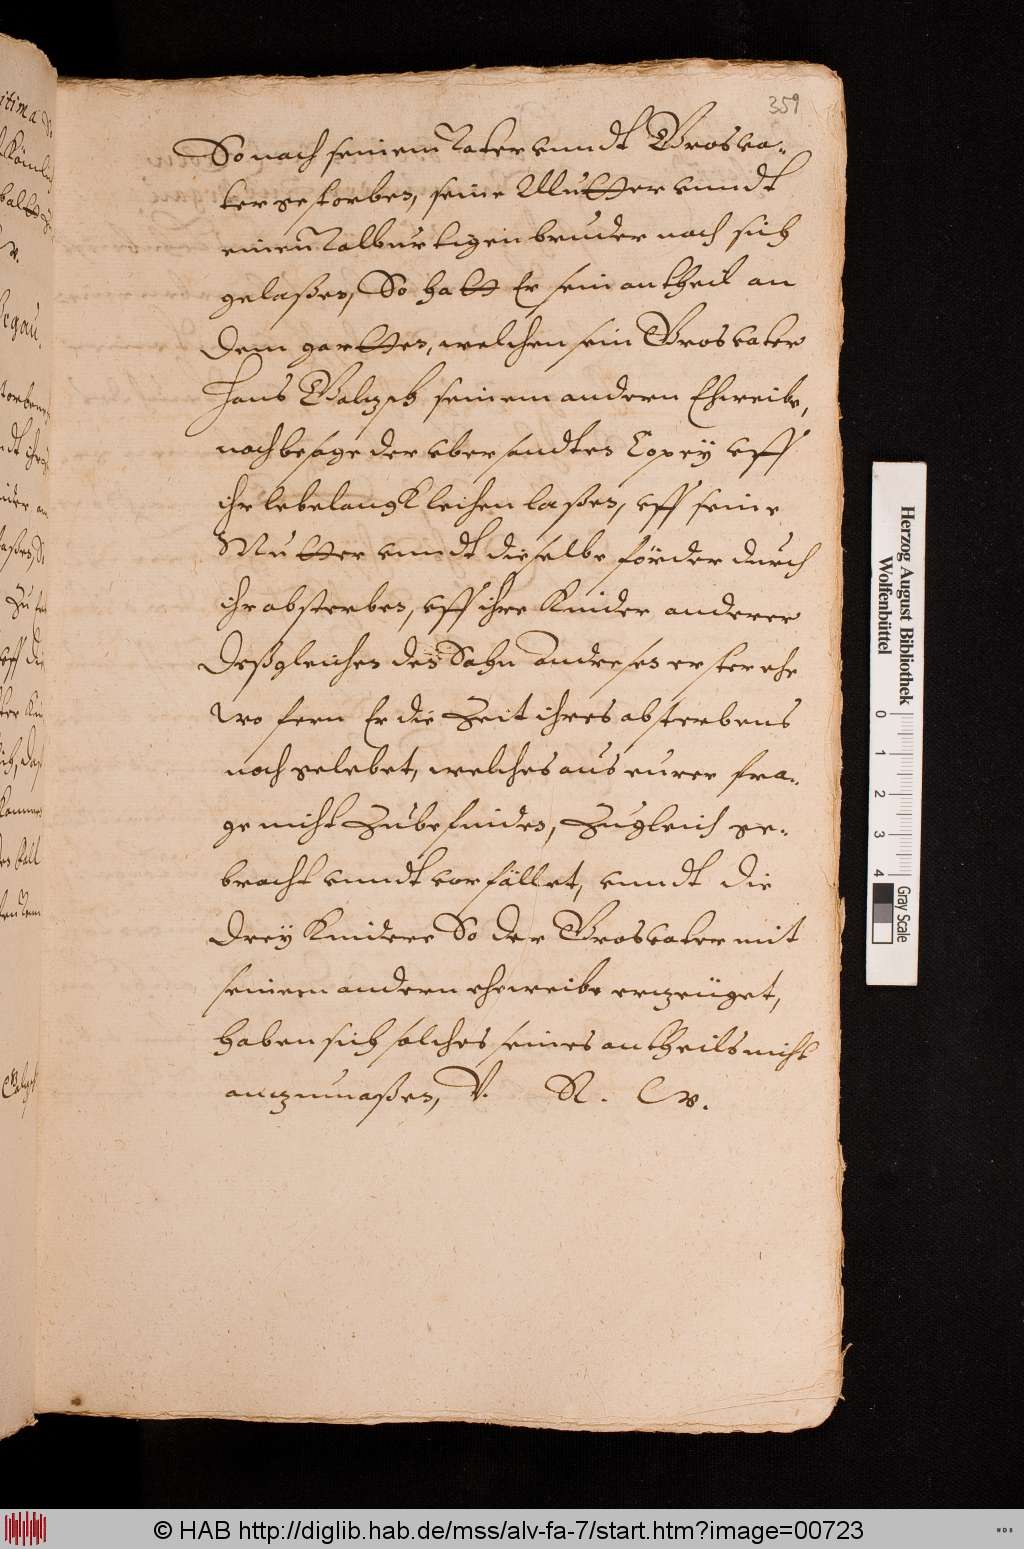 359
So nach seinem Vater vnndt Grosva-
ter gestorben, seine Mutter vnndt
einen Valburtigen bruder nach sich
gelaßen, So hatt Er sein antheil an
dem gartten, welchen sein Grosvater
Hans seinem andern Eheweibe,
nach besage der vbersandten Copeÿ vff
ihr lebelangk leihen laßen, vff seine
Mutter vnndt dieselbe förder durch
ihr absterben, vff ihre Kinder anderer
deßgleichen des Sohn Andresen erster ehe
wo fern Er die Zeit ihres absterbens
noch gelebet, welches aus eurer fra-
ge nicht Zubefinden, Zugleich ge-
bracht vnndt verfället, vnndt die
dreÿ Kindere So der Grosvater mit
seinem andern eheweibe erzeüget,
haben sich solches seines antheils nicht
anzumaßen, V. R. W.
Herzog August Bibliothek
Wolfenbüttel
0 1 2 3 4
Gray Scale
© HAB http://diglib.hab.de/mss/alv-fa-7/start.htm?image=00723